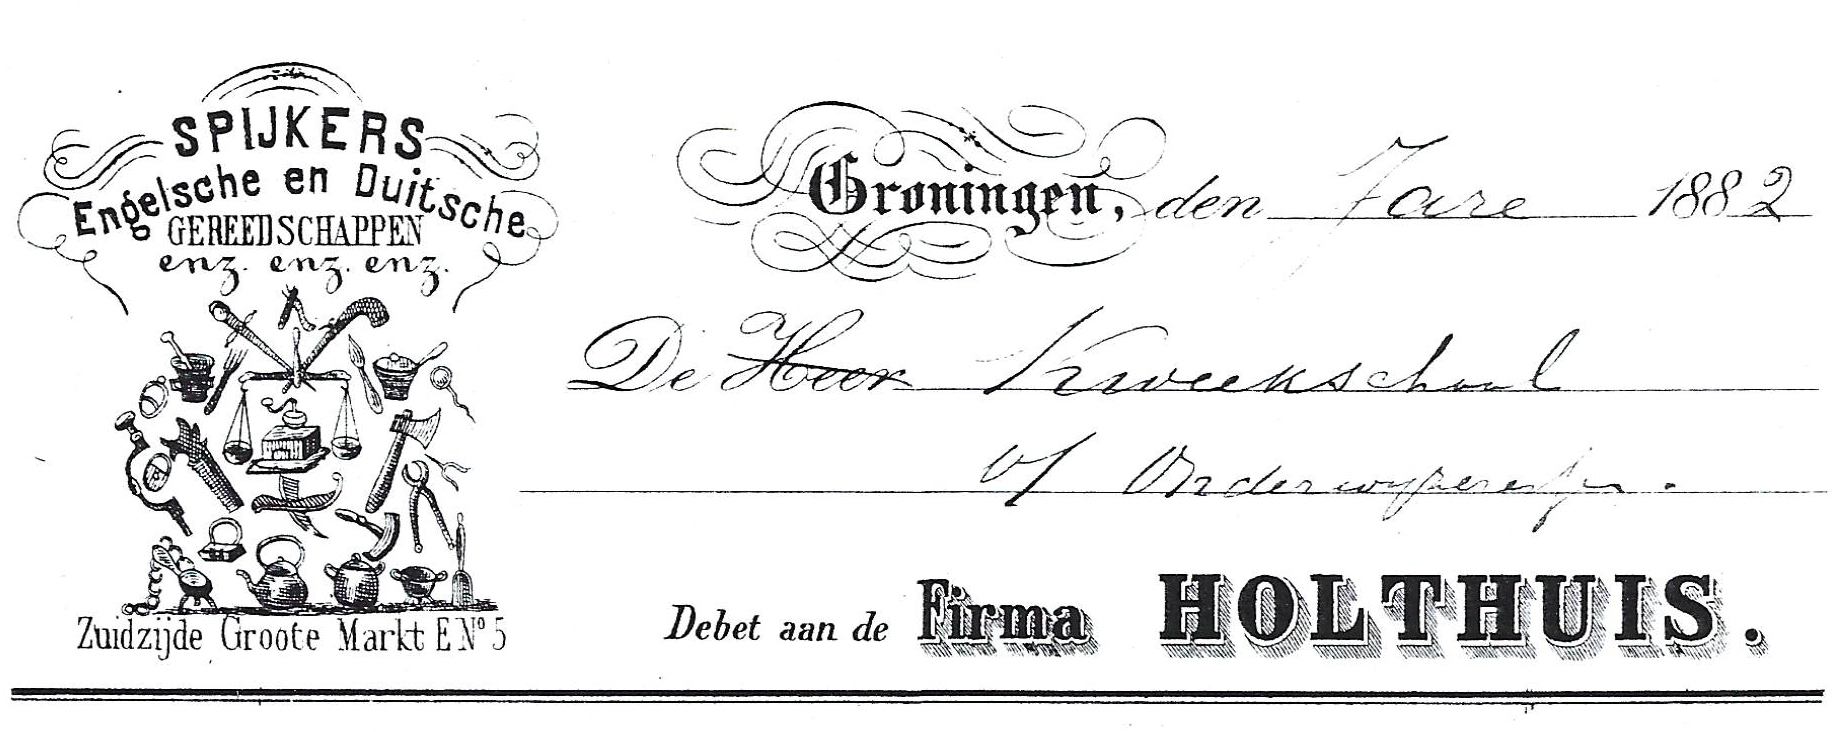 SPIJKERS
Engelsche en Duitsche
GEREEDSCHAPPEN
enz. enz. enz.
Zuidzijde Groote Markt E Nº 5
Groningen, den Jare 1882
De Heer Kweekschool
v/
Debet aan de Firma HOLTHUIS.